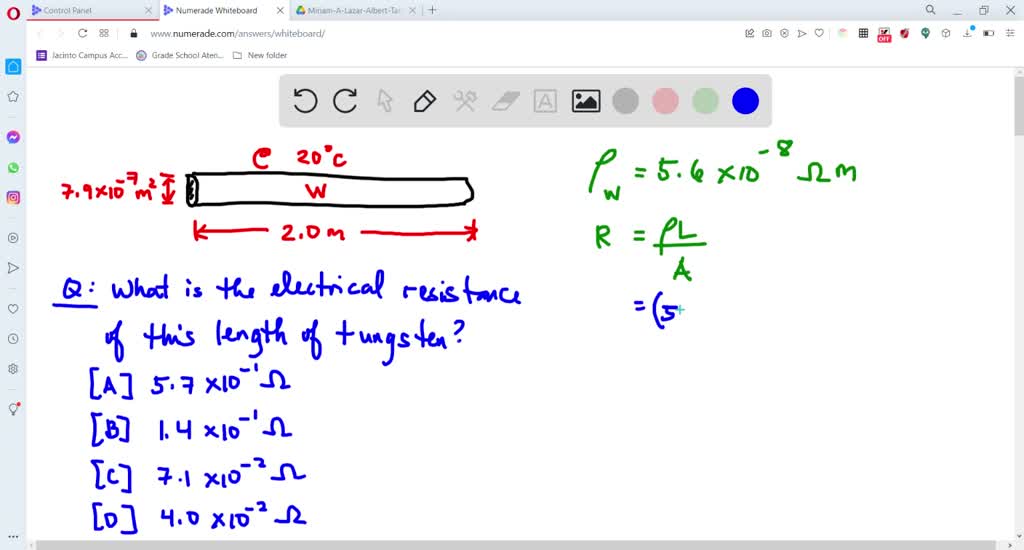 Control Panel
Numerade Whiteboard
Miriam-A-Lazar-Albert-Tar
www.numerade.com/answers/whiteboard/
OFF
Jacinto Campus Acc...
Grade School Aten...
New folder
A
@ 20°C
7.9×10⁻⁷ m²
W
2.0 m
ρ_W = 5.6 ×10⁻⁸ Ω m
R = ρL/A
= (5
Q: What is the electrical resistance
of this length of tungsten?
[A] 5.7 ×10⁻¹ Ω
[B] 1.4 ×10⁻¹ Ω
[C] 7.1 ×10⁻² Ω
[D] 4.0 ×10⁻² Ω